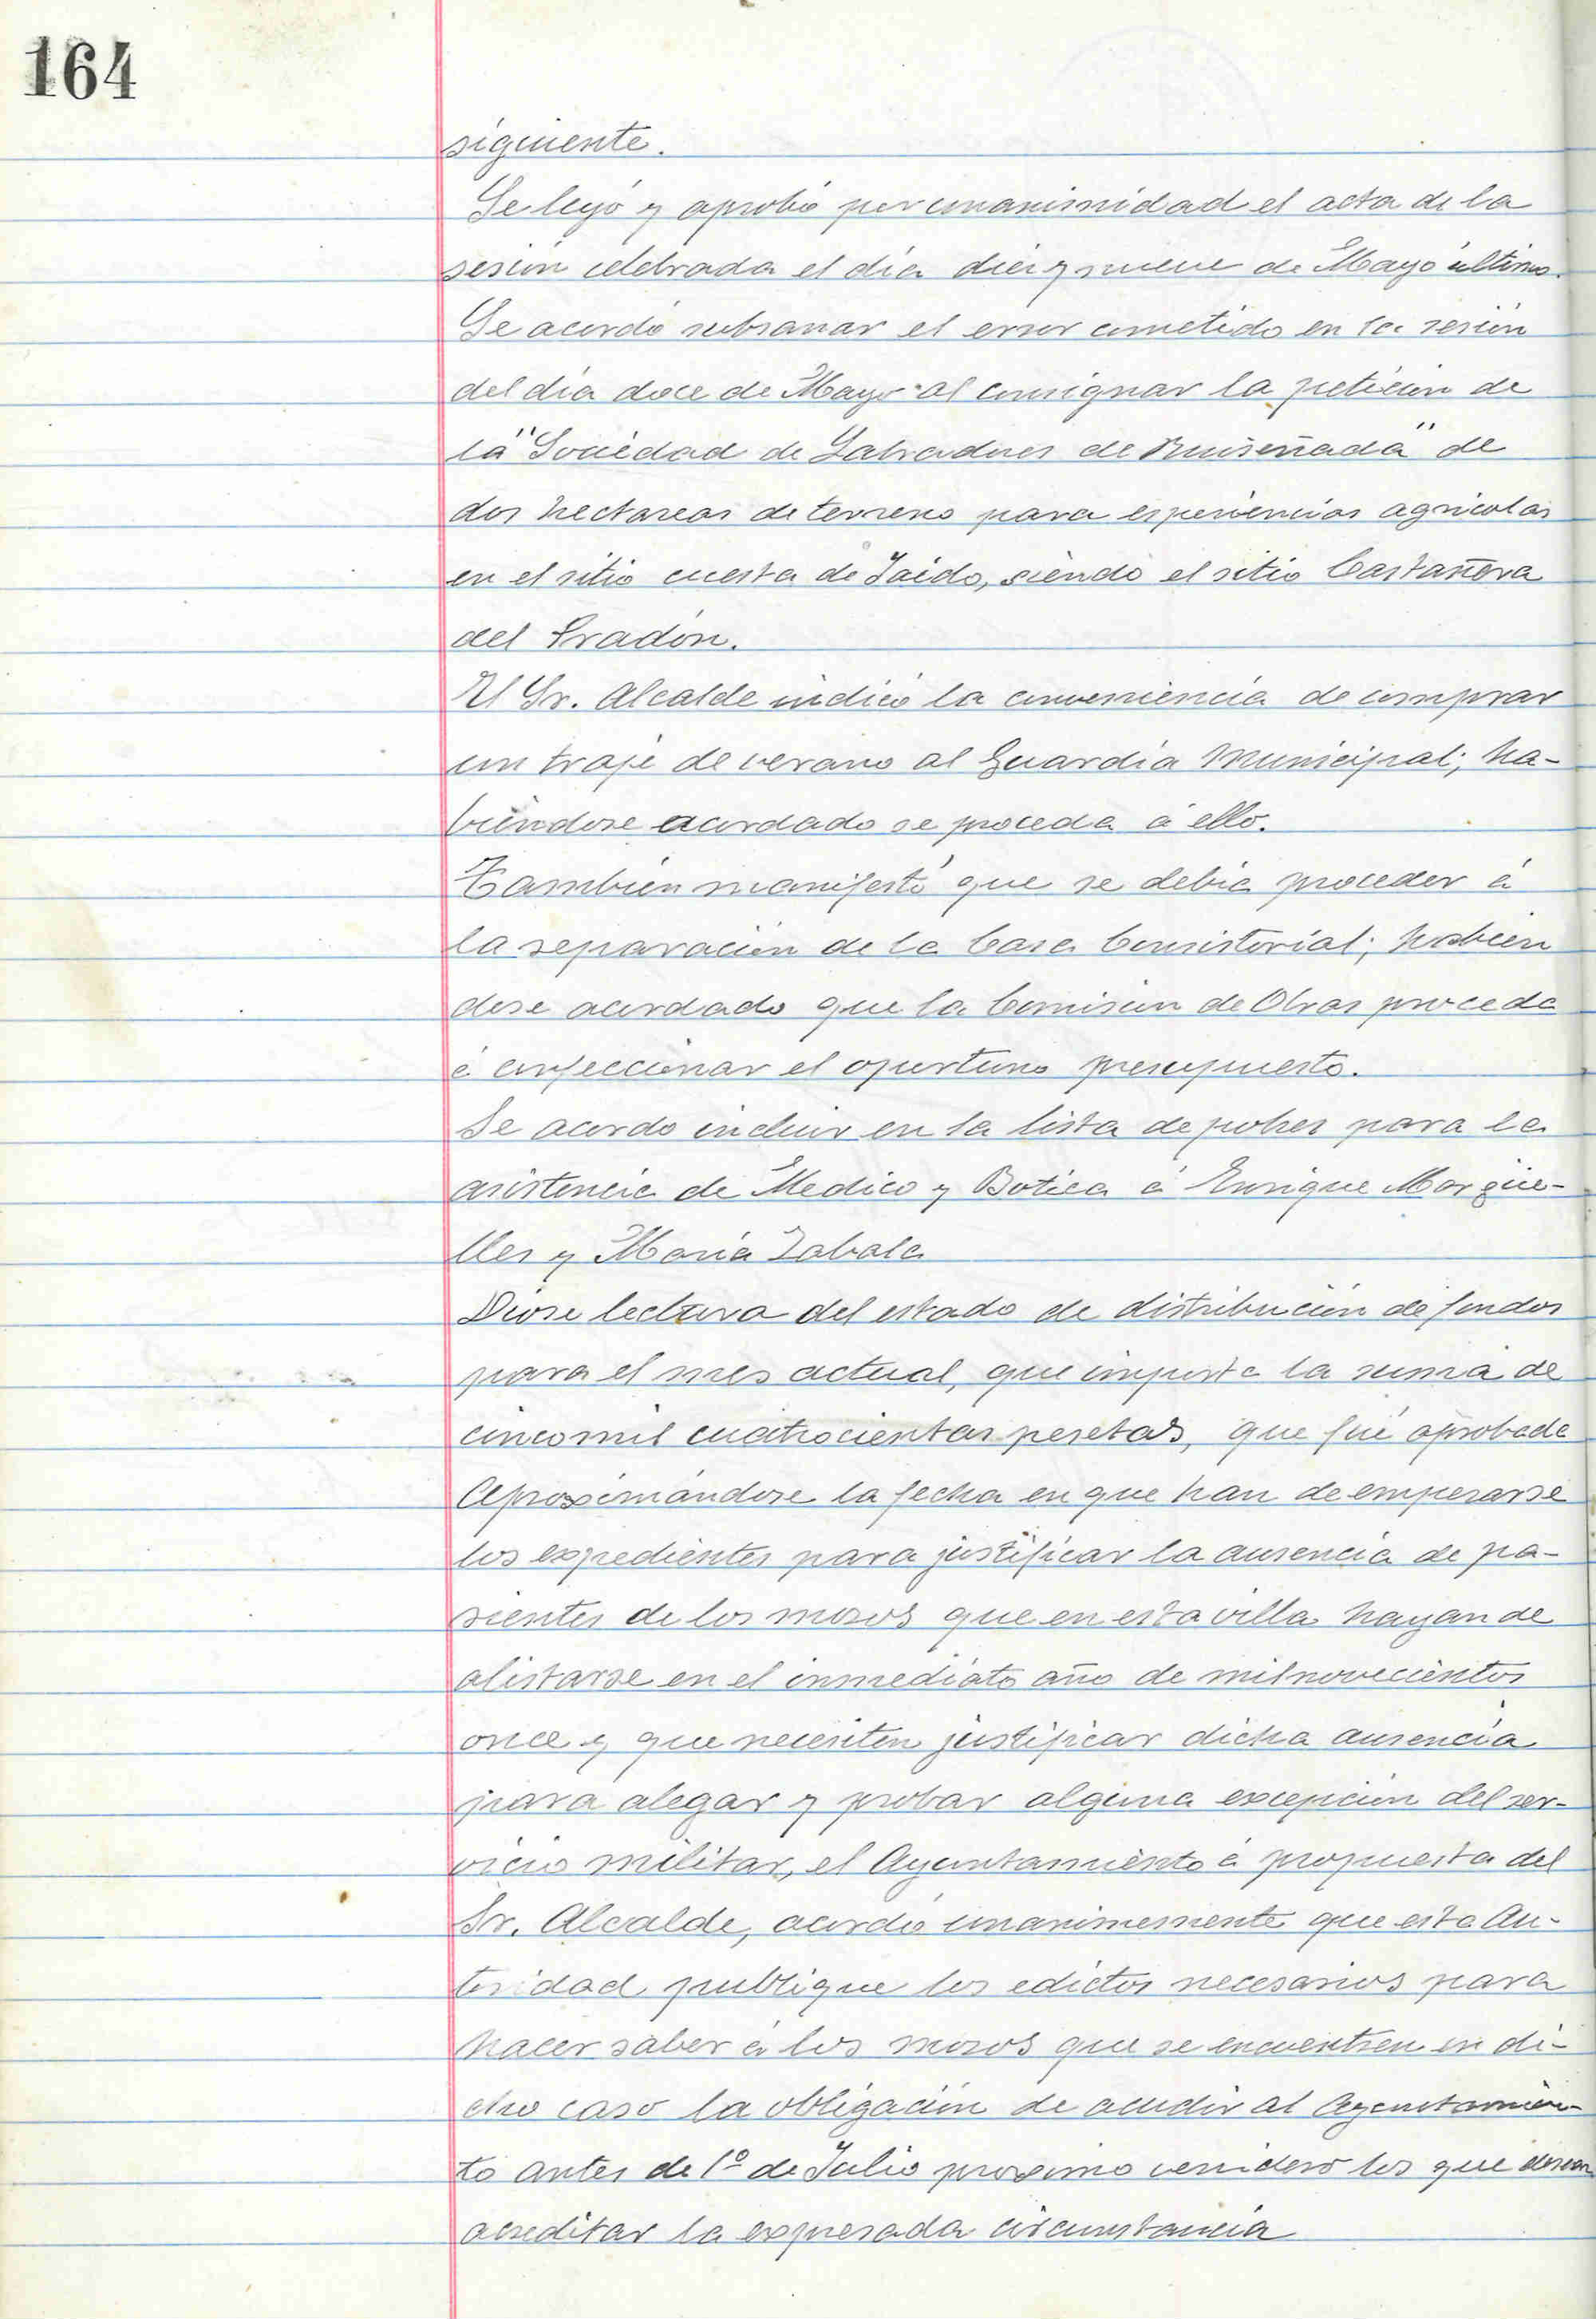 164
siguiente.
Se leyó y aprobó por unanimidad el acta de la
sesión celebrada el día diez y nueve de Mayo último.
Se acordó subsanar el error cometido en la sesión
del día doce de Mayo al consignar la petición de
la "Sociedad de Labradores de Ruiseñada" de
dos hectareas de terreno para experiencias agricolas
en el sitio cuesta de Taido, siendo el sitio Castañera
del Pradón.
El Sr. Alcalde indicó la conveniencia de comprar
un traje de verano al Guardia Municipal; ha-
biendose acordado se proceda á ello.
Tambien manifestó que se debia proceder á
la reparación de la Casa Consistorial; habien
dose acordado que la Comisión de Obras proceda
á confeccionar el oportuno presupuesto.
Se acordo incluir en la lista de pobres para la
asistencia de Medico y Botica á Enrique Margüe-
lles y Maria Zabala
Diose lectura del estado de distribución de fondos
para el mes actual, que importa la suma de
cinco mil cuatrocientas pesetas, que fué aprobada
Aproximándose la fecha en que han de empezarse
los expedientes para justificar la ausencia de pa-
rientes de los mozos que en esta villa hayan de
alistarse en el inmediato año de mil novecientos
once y que necesiten justificar dicha ausencia
para alegar y probar alguna excepción del ser-
vicio militar, el Ayuntamiento á propuesta del
Sr. Alcalde, acordó unanimemente que esta Au-
toridad publique los edictos necesarios para
hacer saber á los mozos que se encuentren en di-
cho caso la obligación de acudir al Ayuntamien-
to antes de 1º de Julio proximo venidero los que deseen
acreditar la expresada circunstancia